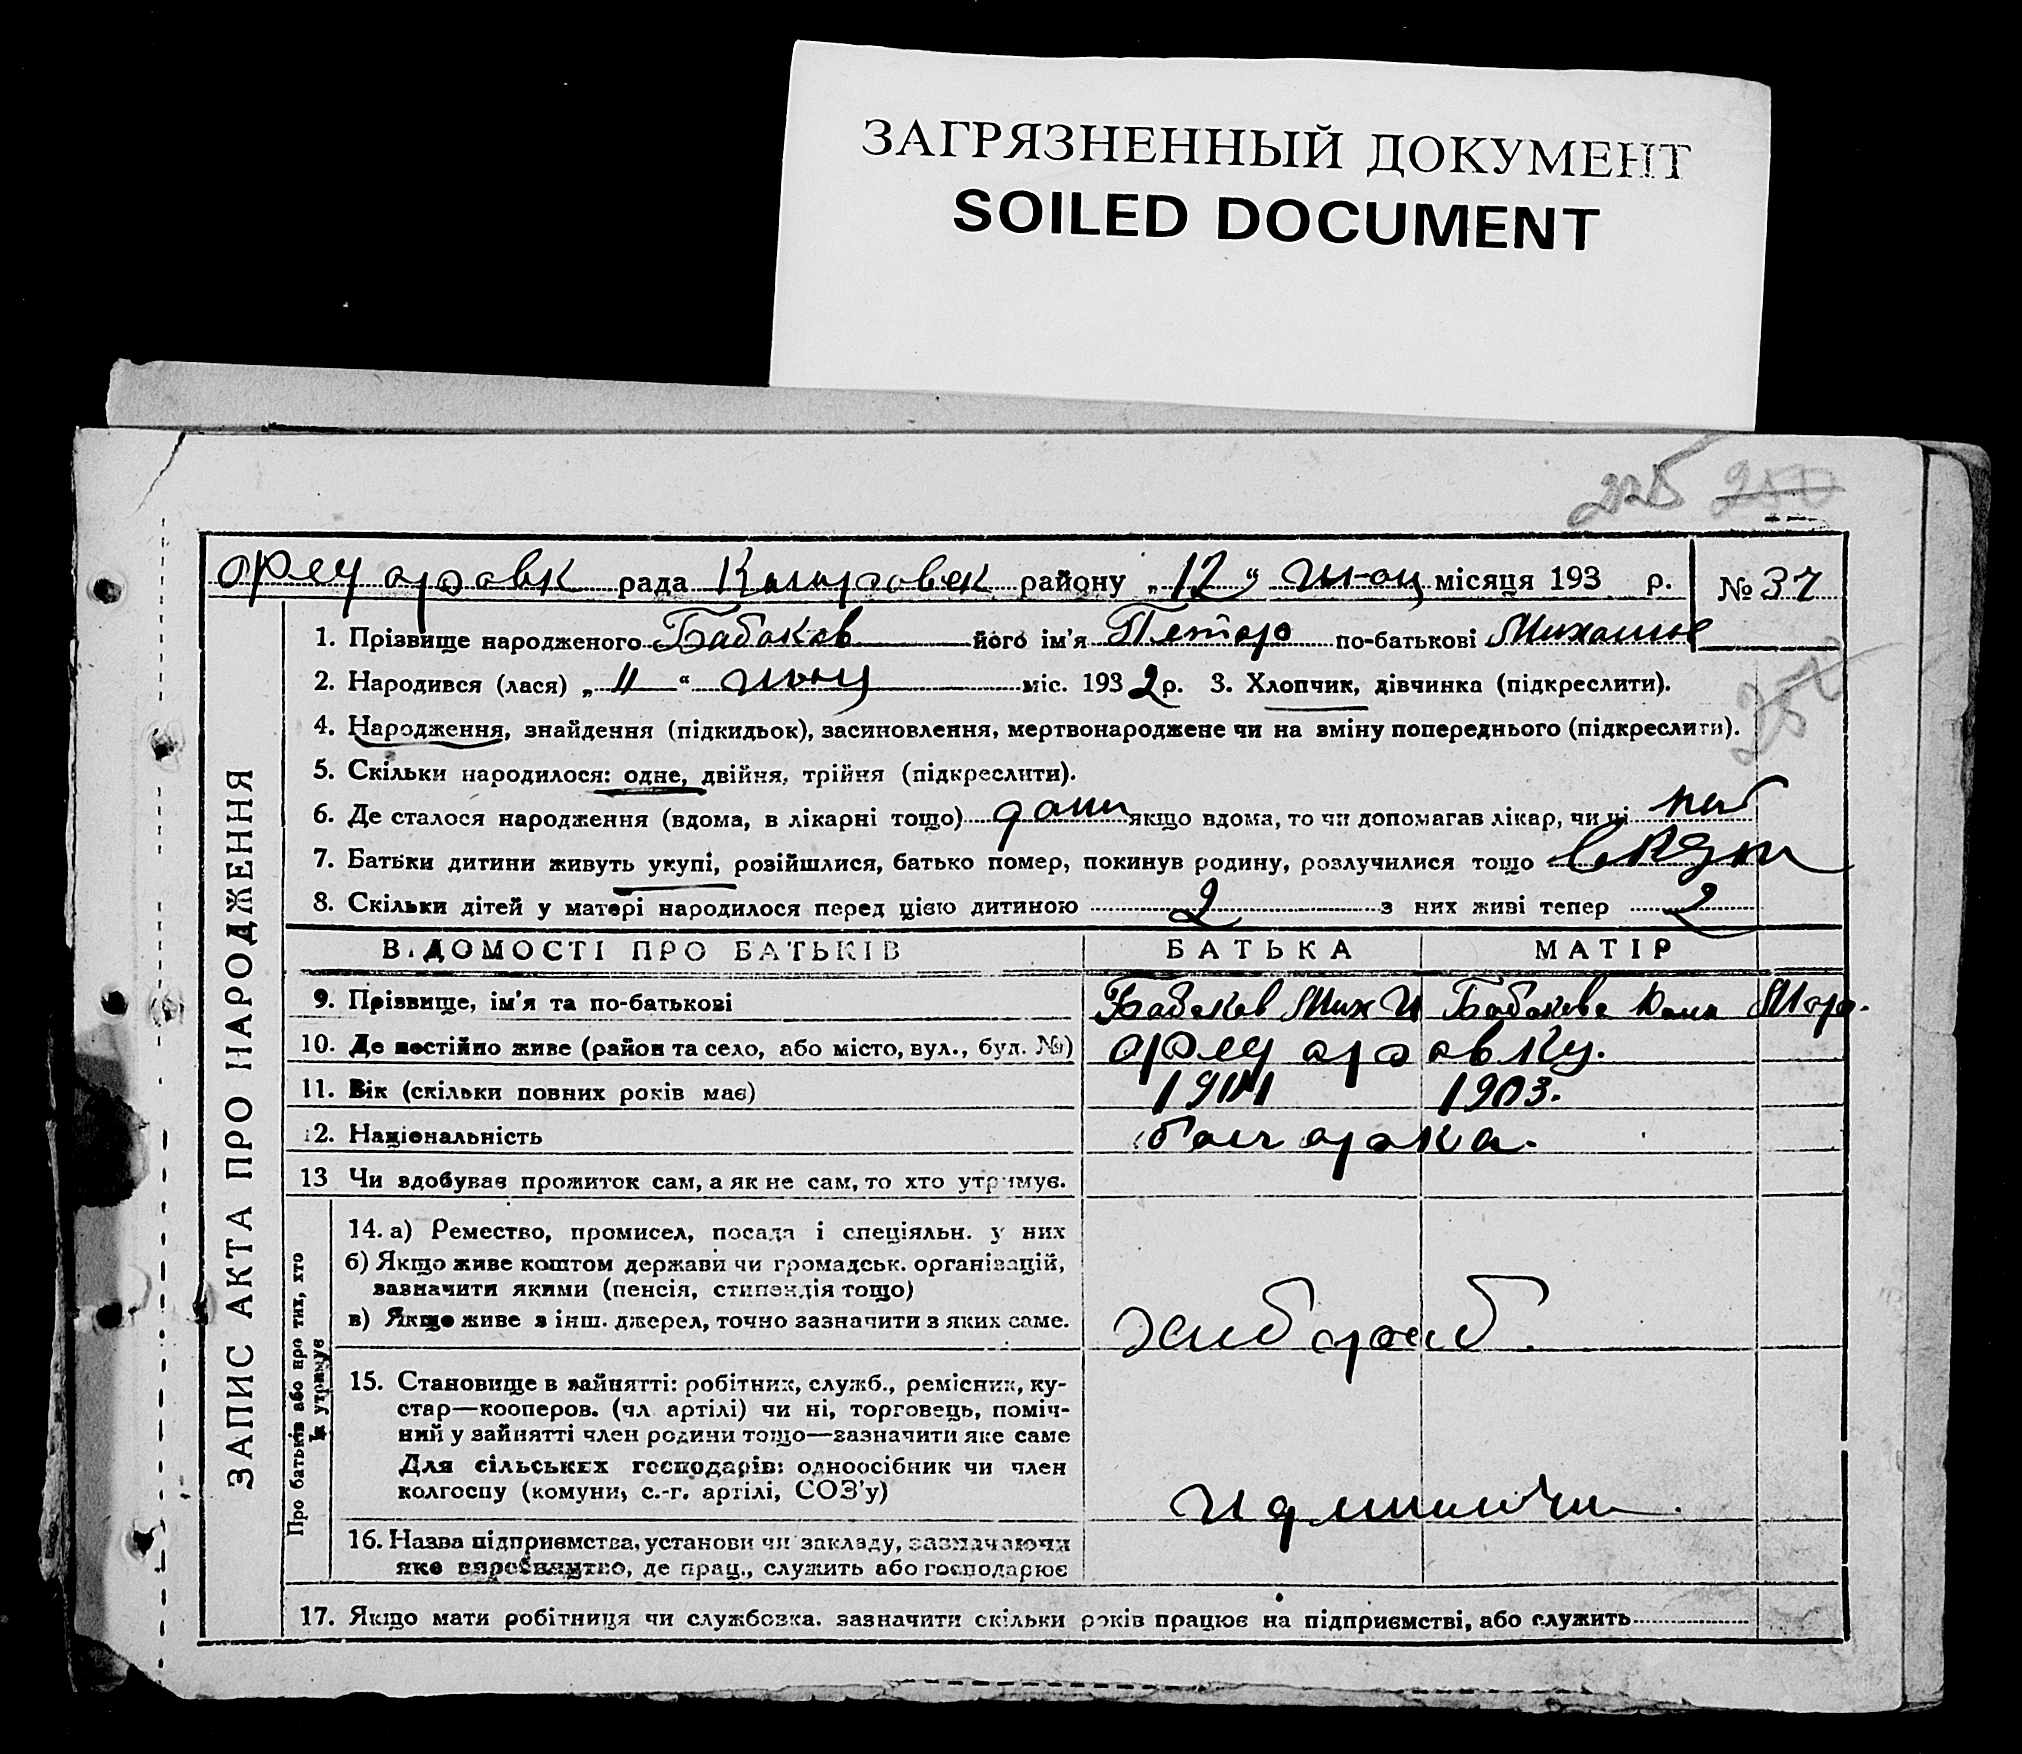 ЗАГРЯЗНЕННЫЙ ДОКУМЕНТ
SOILED DOCUMENT
225 250
рада района району „12“ місяця 193 р. № 37
1. Прізвище народженого Бабаков його ім'я Петро по-батькові
2. Народився (лася) „11“ міс. 1932 р. 3. Хлопчик, дівчинка (підкреслити).
4. Народження, знайдення (підкидьок), засиновлення, мертвонароджене чи на зміну попереднього (підкреслити).
5. Скільки народилося: одне, двійня, трійня (підкреслити).
6. Де сталося народження (вдома, в лікарні тощо) якщо вдома, то чи допомагав лікар, чи ні
7. Батьки дитини живуть укупі, розійшлися, батько помер, покинув родину, розлучилися тощо
8. Скільки дітей у матері народилося перед цією дитиною 2 з них живі тепер 2
ВІДОМОСТІ ПРО БАТЬКІВ БАТЬКА МАТІР
9. Прізвище, ім'я та по-батькові Бабаков Мих И Бабакова
10. Де постійно живе (район та село, або місто, вул., буд. №)
11. Вік (скільки повних років має) 1903.
12. Національність
13 Чи здобуває прожиток сам, а як не сам, то хто утримує.
14. а) Ремество, промисел, посада і спеціяльн. у них
б) Якщо живе коштом держави чи громадськ. організацій,
зазначити якими (пенсія, стипендія тощо)
в) Якщо живе з інш. джерел, точно зазначити з яких саме.
хлібороб.
15. Становище в зайнятті: робітник, служб., ремісник, ку-
стар—кооперов. (чл. артілі) чи ні, торговець, поміч-
ний у зайнятті член родини тощо—зазначити яке саме
Для сільських господарів: одноосібник чи член
колгоспу (комуни, с.-г. артілі, СОЗ'у)
16. Назва підприємства, установи чи закладу, зазначаючи
яке виробництво, де прац., служить або господарює
17. Якщо мати робітниця чи службовка. зазначити скільки років працює на підприємстві, або служить
ЗАПИС АКТА ПРО НАРОДЖЕННЯ
Про батьків або про тих, хто
їх утримує